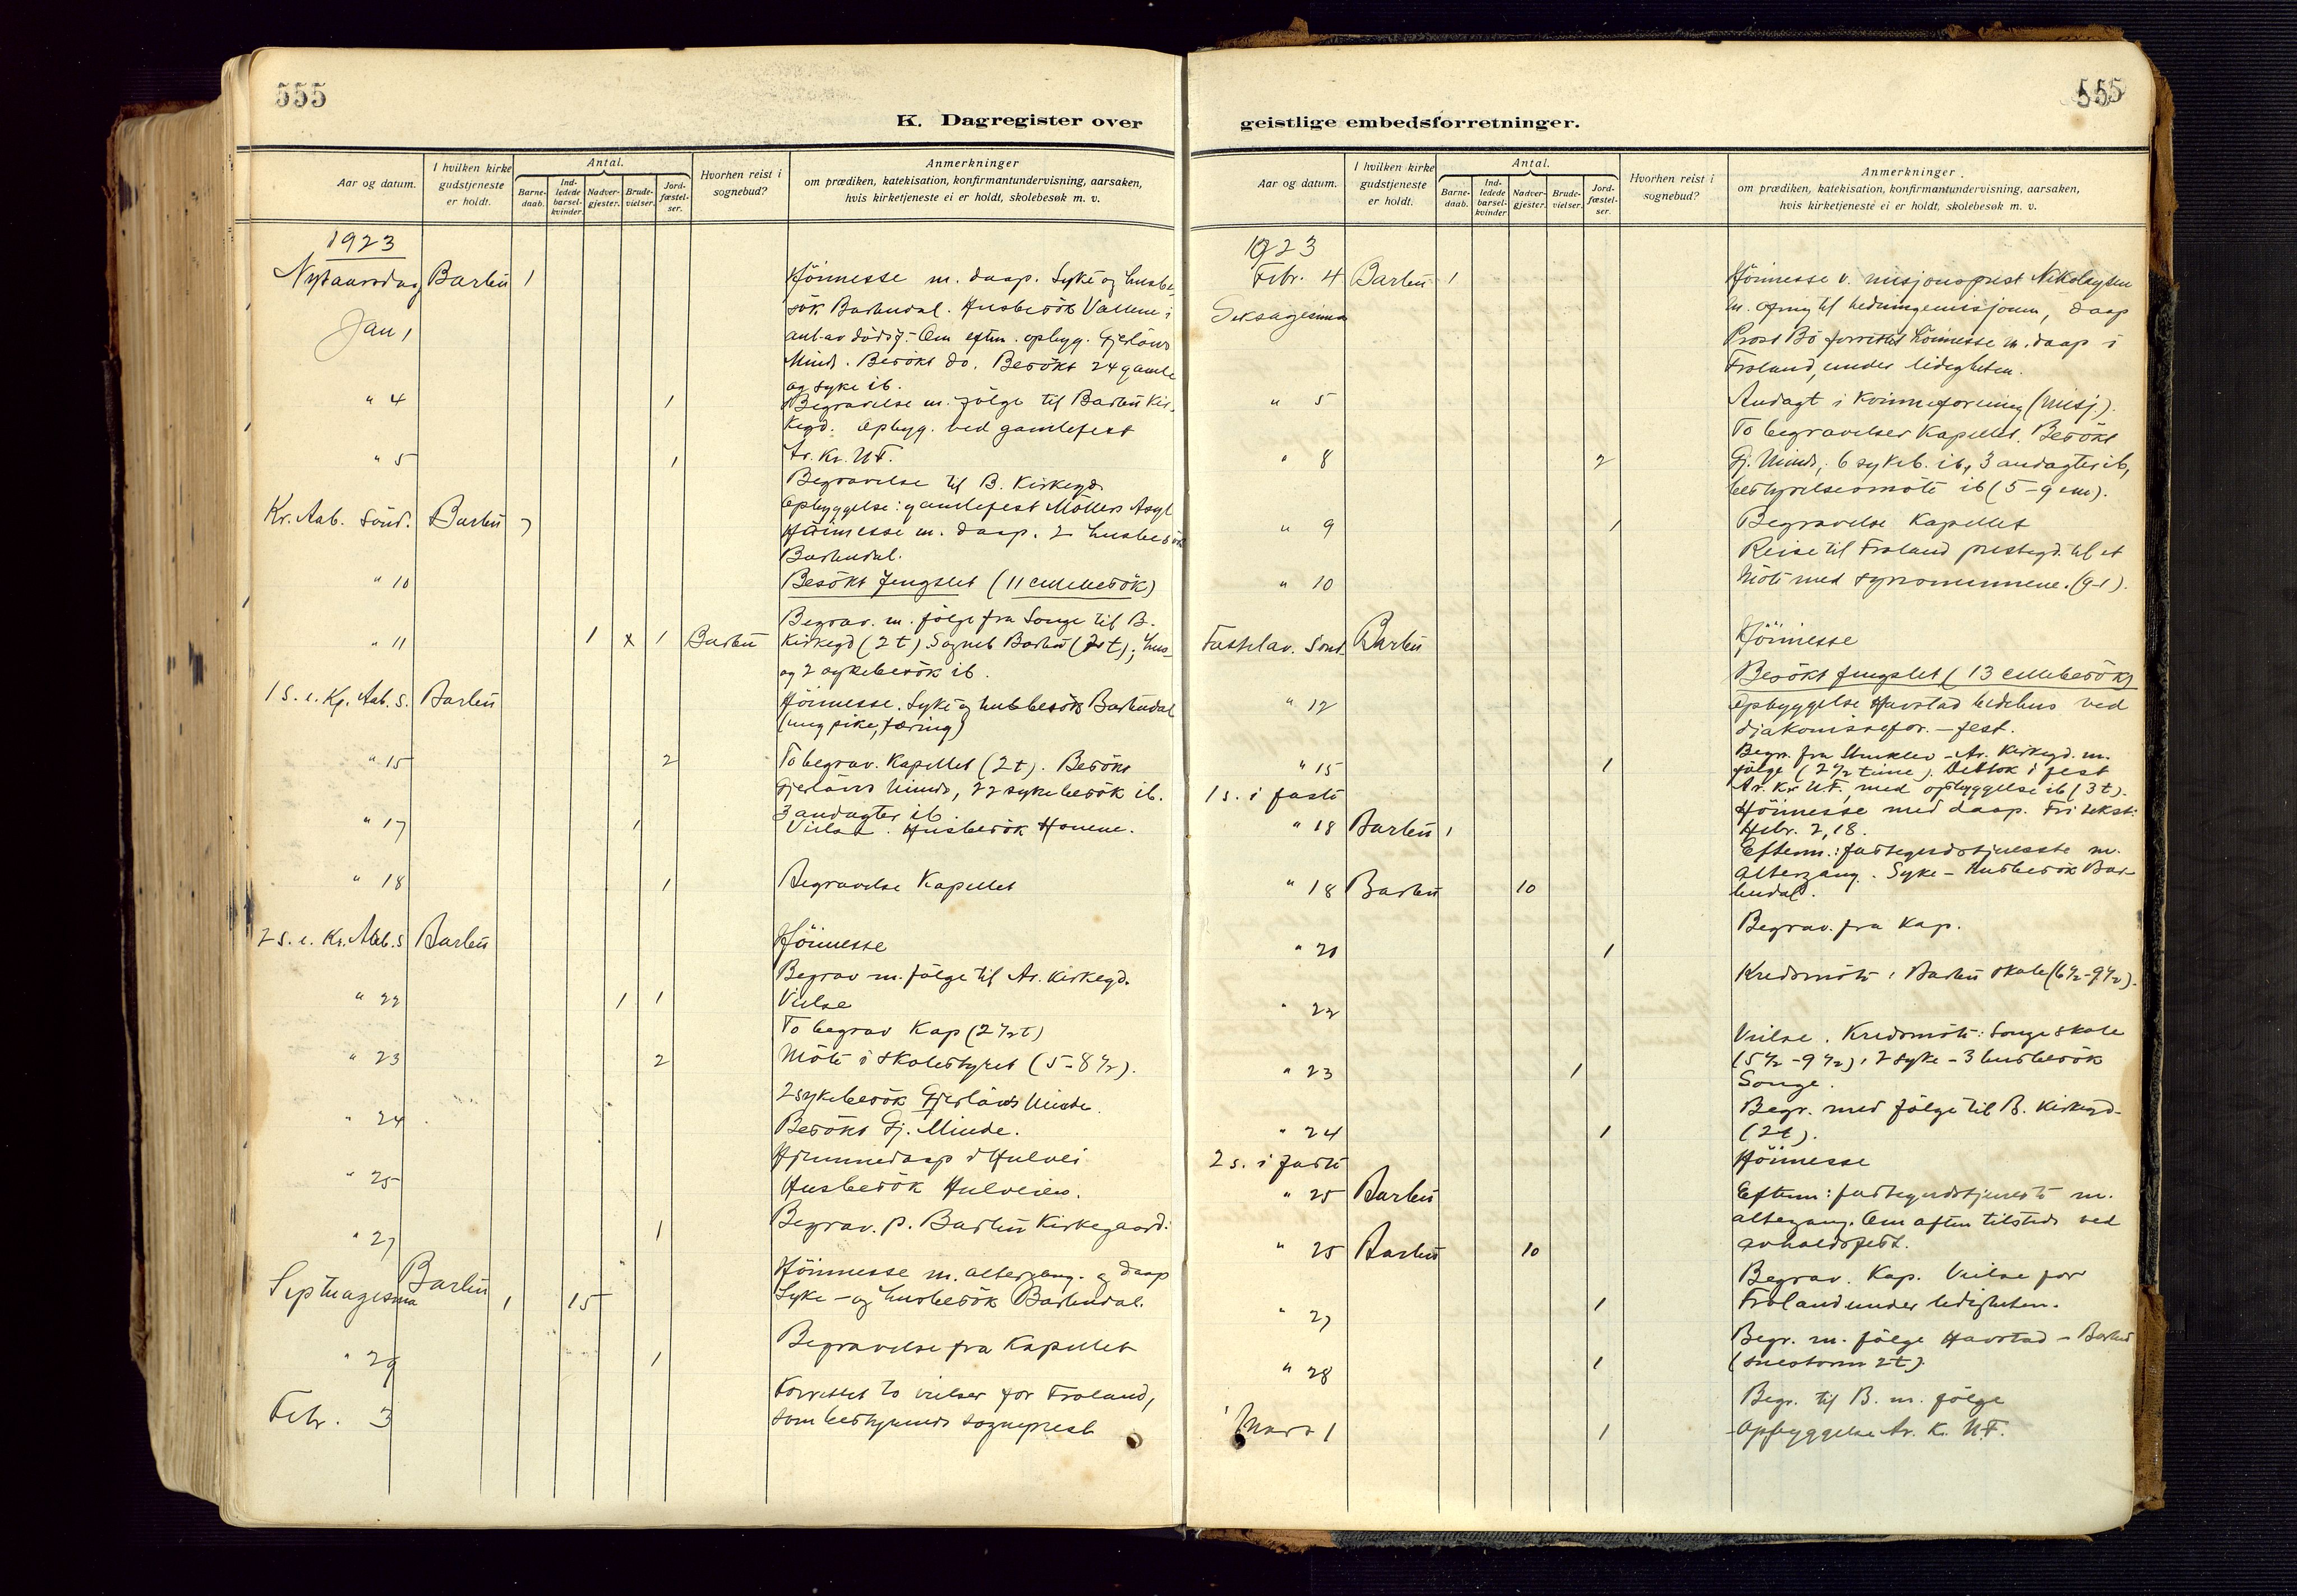 555
K. Dagregister over
Aar og datum.
I hvilken kirke gudstjeneste er holdt.
Antal.
Barne-daab.
Ind-ledede barsel-kvinder.
Nadver-gjester.
Brude-vielser.
Jord-fæstel-ser.
Hvorhen reist i sognebud?
Anmerkninger
om prædiken, katekisation, konfirmantundervisning, aarsaken,
hvis kirketjeneste ei er holdt, skolebesøk m. v.
1923
Nytaarsdag Barbu 1 Höimesse m. daap. Syke og husbe
Jan 1 sök Barbudal. Husbesök Vallene i
anl. av dödsf. Om eftm. opbyg. Gjerlöws
Minde. Besökt do. Besökt 24 gamle
og syke ib.
" 4 1 Begravelse m. följe til Barbu Kir-
kegd. Opbyg. ved gamlefest
Ar. Kr. U.F.
" 5 1 Begravelse til B. Kirkegd.
Opbyggelse: gamlefest Möllers Asyl
Kr. Aab. Sönd. Barbu 7 Höimesse m. daap. 2 husbesök
Barbudal.
" 10 Besökt fengslet (11 cellebesök)
Begrav. m. följe fra Songe til B.
" 11 1 x 1 Barbu Kirkegd (2 t) Sogneb Barbu (2 t); hus-
og 2 sykebesök ib.
1 S. e. Kr. Aab. S. Barbu Höimesse. Syke og husbesök Barbudal
(ung pike, tæring)
" 15 2 To begrav. Kapellet (2 t). Besökt
Gjerlöws Minde, 22 sykebesök ib.
3 andagter ib.
" 17 1 Vielse. Husbesök Hovene.
" 18 1 Begravelse Kapellet
2 S. e. Kr. Aab. S Barbu Höimesse
Begrav m. följe til Ar. Kirkegd.
" 22 1 1 Vielse
To begrav Kap (2 1/2 t)
" 23 2 Möte i skolestyret (5-8 1/2).
2 sykebesök Gjerlöws Minde.
" 24 Besökt Gj. Minde.
Hjemmedaap i Hulvei
" 25 Husbesök Hulveien.
" 27 1 Begrav. p. Barbu Kirkegaard.
Septuagesima Barbu 1 15 Höimesse m. altergang. og daap
Syke- og husbesök Barbudal.
" 29 1 Begravelse fra Kapellet
Febr. 3 Forrettet to vielser for Froland,
som bestyrende sogneprest
555
geistlige embedsforretninger.
Aar og datum.
I hvilken kirke gudstjeneste er holdt.
Antal.
Barne-daab.
Ind-ledede barsel-kvinder
Nadver-gjester.
Brude-vielser.
Jord-fæstel-ser.
Hvorhen reist i sognebud?
Anmerkninger.
om prædiken, katekisation, konfirmantundervisning, aarsaken,
hvis kirketjeneste ei er holdt, skolebesøk m. v.
1923
Febr. 4 Barbu 1 Höimesse v. misjonsprest Nikolaysen
Seksagesima m. ofring til hedningemisjonen, daap
Prost Bö forrettet höimesse m. daap i
Froland, under ledigheten.
" 5 Andagt i Kvinneforening (misj.).
To begravelser Kapellet. Besökt
" 8 2 Gj. Minde, 6 sykeb. ib, 3 andagter ib,
bestyrelsesmöte ib (5-9 em).
" 9 1 Begravelse Kapellet
Reise til Froland prestegd. til et
" 10 Möte med synsmennene. (9-1).
Fastelav. Sönd. Barbu Höimesse
Besökt fengslet (13 cellebesök)
" 12 Opbyggelse Havstad bedehus ved
diakonissefor.-fest.
" 15 1 Begr. fra - Ar. Kirkegd. m.
följe (2 1/2 time). Deltok i fest
Ar. Kr. U.F., med opbyggelse ib (3 t).
1 s. i faste
" 18 Barbu 1 Höimesse med daap. Fri tekst:
Hebr. 2,18.
Eftm.: fastegudstjeneste m.
" 18 Barbu 10 altergang. Syke- husbesök Bar-
budal.
" 20 1 Begrav. fra Kap.
" 22 Kredsmöte i Barbu skole (6 1/2-9 1/2).
Vielse. Kredsmöte: Songe skole
" 23 1 (5 1/2-9 1/2), 2 syke- 3 husbesök
Songe.
" 24 1 Begr. med följe til B. Kirkegd.
(2 t).
2 s. i faste Höimesse
" 25 Barbu Eftm: fastegudstjeneste m.
altergang. Om aften tilstede ved
" 25 Barbu 10 avholdsfest.
" 27 1 Begrav. Kap. Vielse for
Froland under ledigheten.
" 28 1 Begr. m. följe Havstad - Barbu
(snestorm 2 t).
Begr. til B. m. följe
Mars 1 1 Opbyggelse Ar. K. U.F.